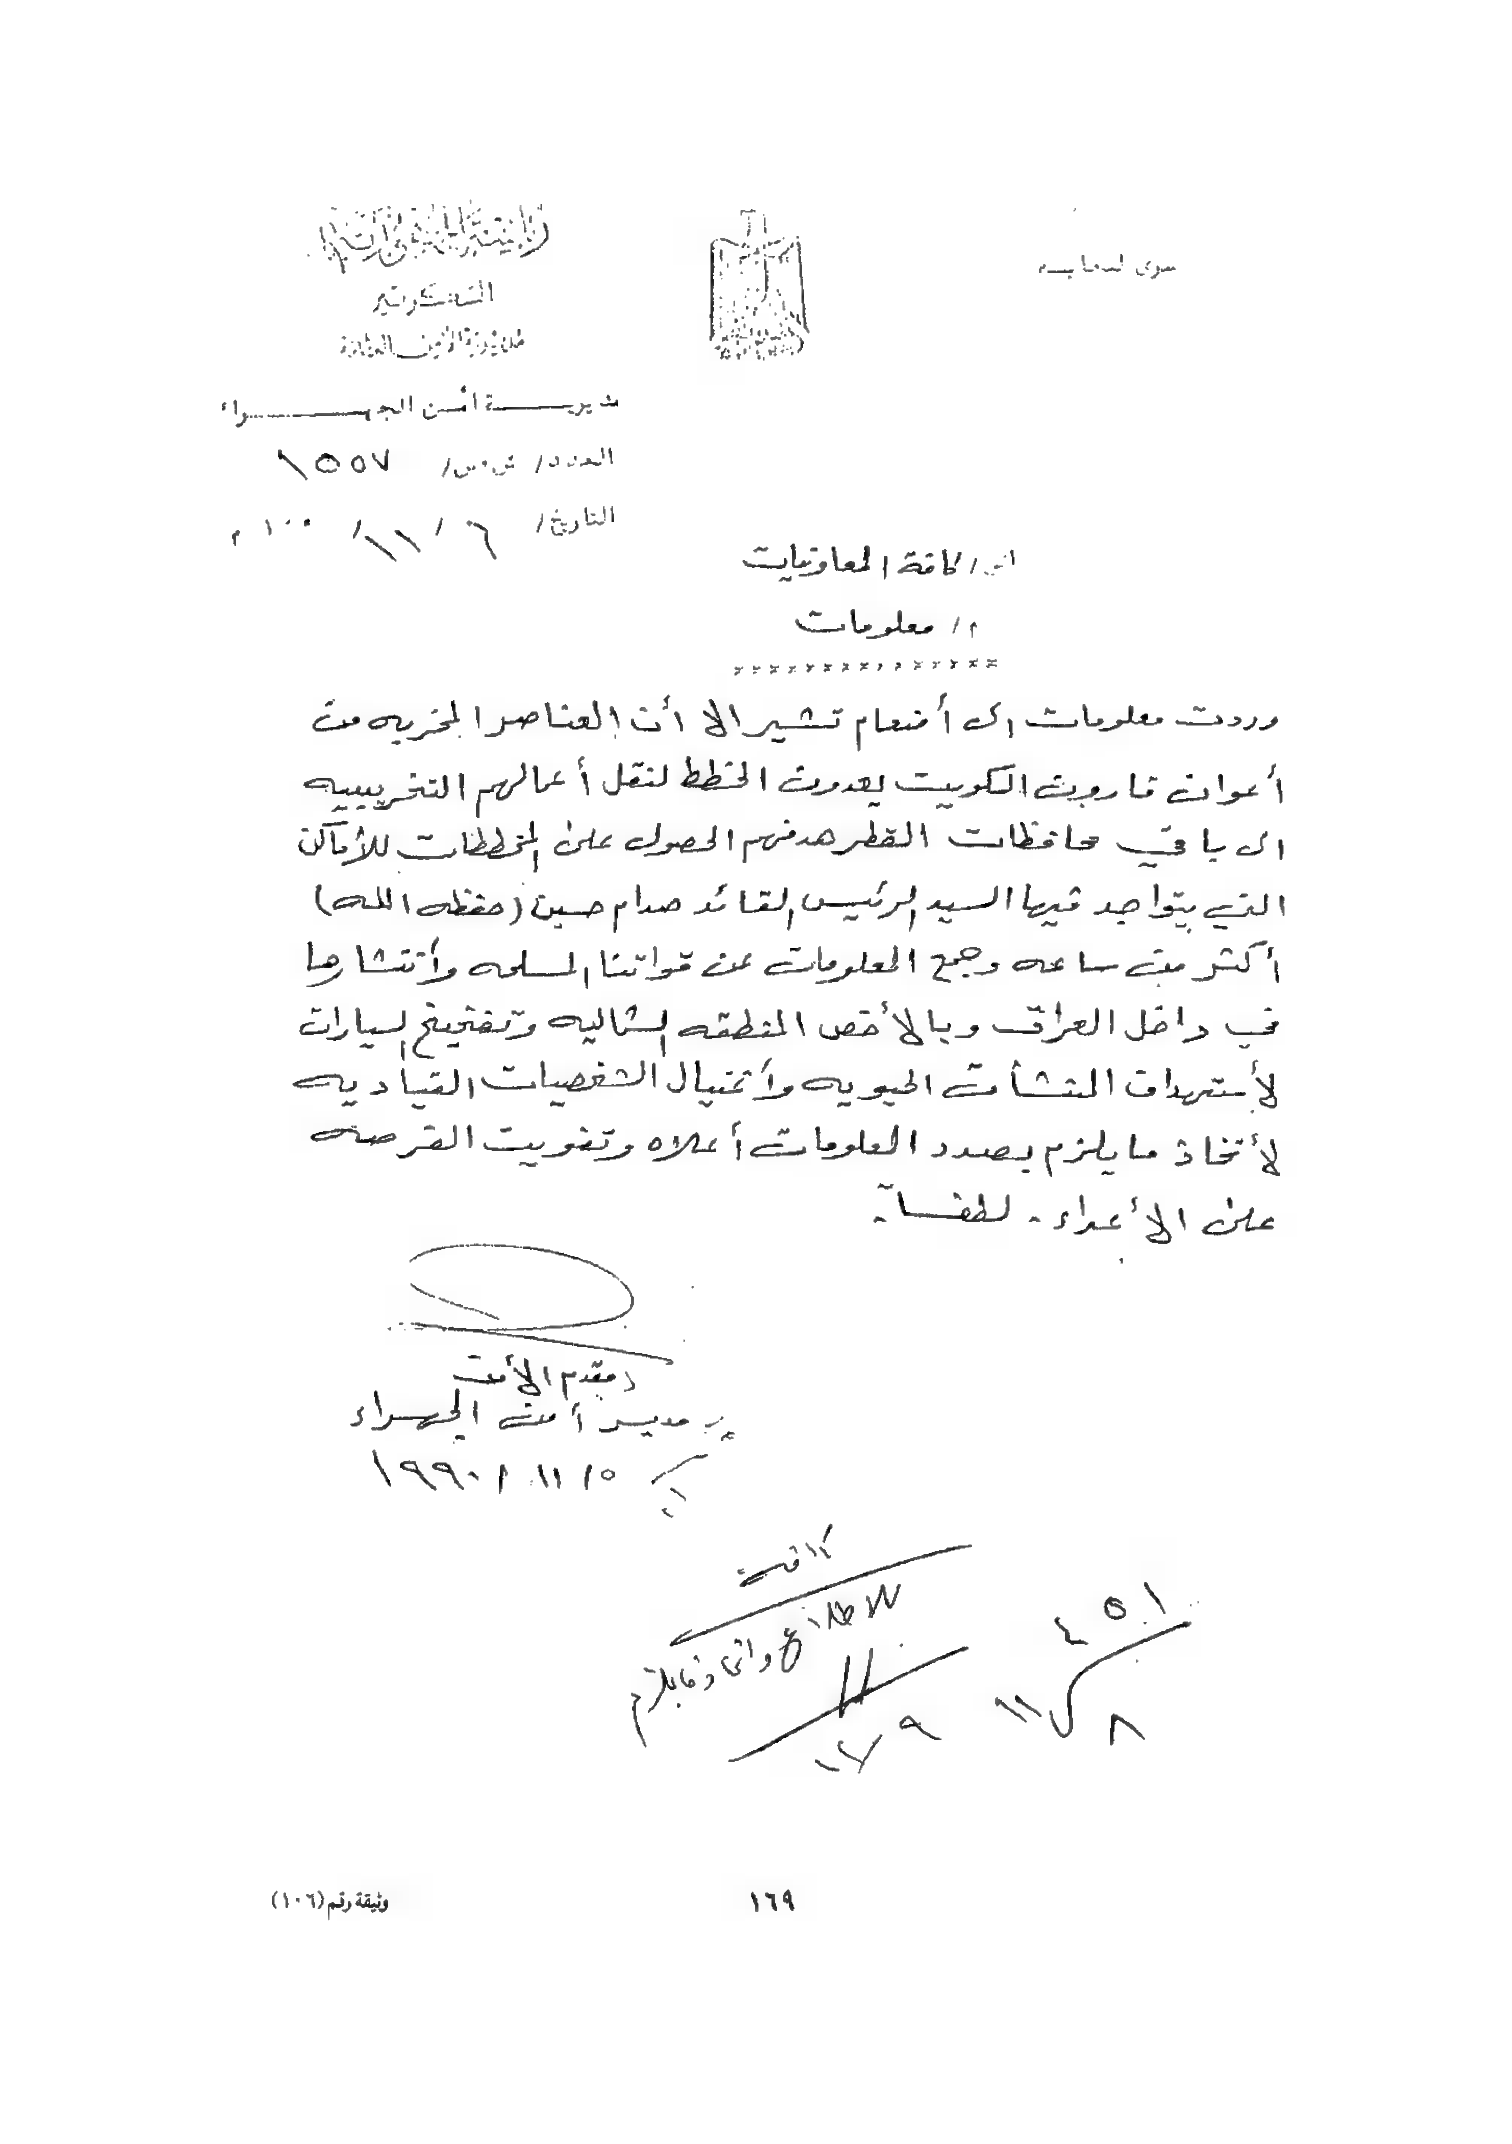 سري للغاية
السكرتير
مديرية الأمن العامة
مديرية أمن الجهراء
العدد/ ش.س/ ١٥٥٧
التاريخ/ ٠٦ / ١١ /
كافة المعاونيات
م/ معلومات
وردت معلومات الى أضعام تشير الا أن العناصر المخربه من
أعوان قارون الكويت يعدون الخطط لنقل أعمالهم التخريبيه
الى باقي محافظات القطر هدفهم الحصول على المخططات للأماكن
التي يتواجد فيها السيد الرئيس القائد صدام حسين (حفظه الله)
أكثر من ساعه وجمع المعلومات عن قواتنا المسلحه وأنتشارها
في داخل العراق وبالأخص المنطقه الشماليه وتفخيخ السيارات
لأستهداف المنشأت الحيويه وأغتيال الشخصيات القياديه
لأتخاذ مايلزم بصدد المعلومات أعلاه وتفويت الفرصه
على الأعداء . لطفاً .
مقدم الأمن
مدير أمن الجهراء
١٩٩٠/ ١١ / ٥
كافة
للاطلاع واتخاذ مايلزم
٤٥١
٨
١١
وثيقة رقم (١٠٦)
١٦٩